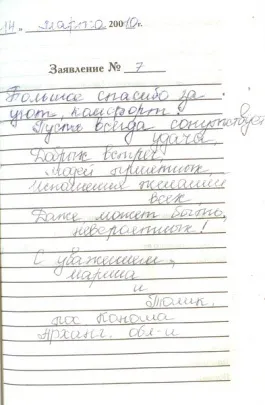 „14" марта 2000г.
Заявление № 7
Большое спасибо за
уют, комфорт!
Пусть всегда сопутствует
удача.
Добрых встреч,
людей приятных,
исполнения желаний
всех
Даже может быть,
невероятных!
С уважением,
марина
и
Толик.
пос Конома
Арханг. обл-и